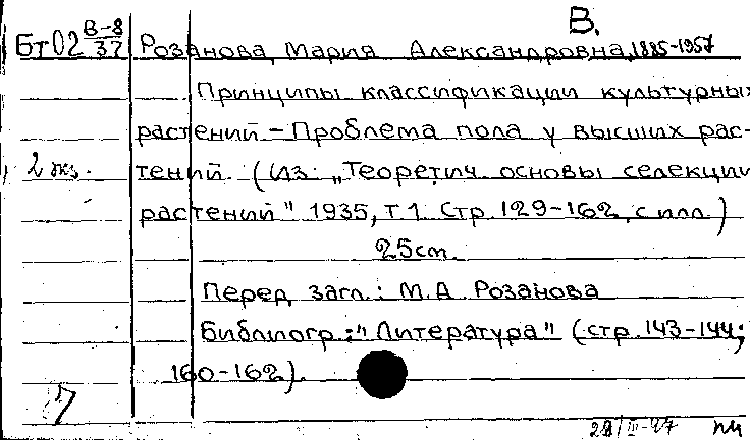 В.
Бт02 В-8/37 Розанова, Мария Александровна, 1885-1957
Принципы классификации культурных
растений - Проблема пола у высших рас-
2 экз. тений. (Из: „Теоретич. основы селекции
растений" 1935, т.1. Стр. 129-162, с илл.)
25см.
Перед загл.: М.А. Розанова
Библиогр.: "Литература" (стр. 143-144;
160-162).
7